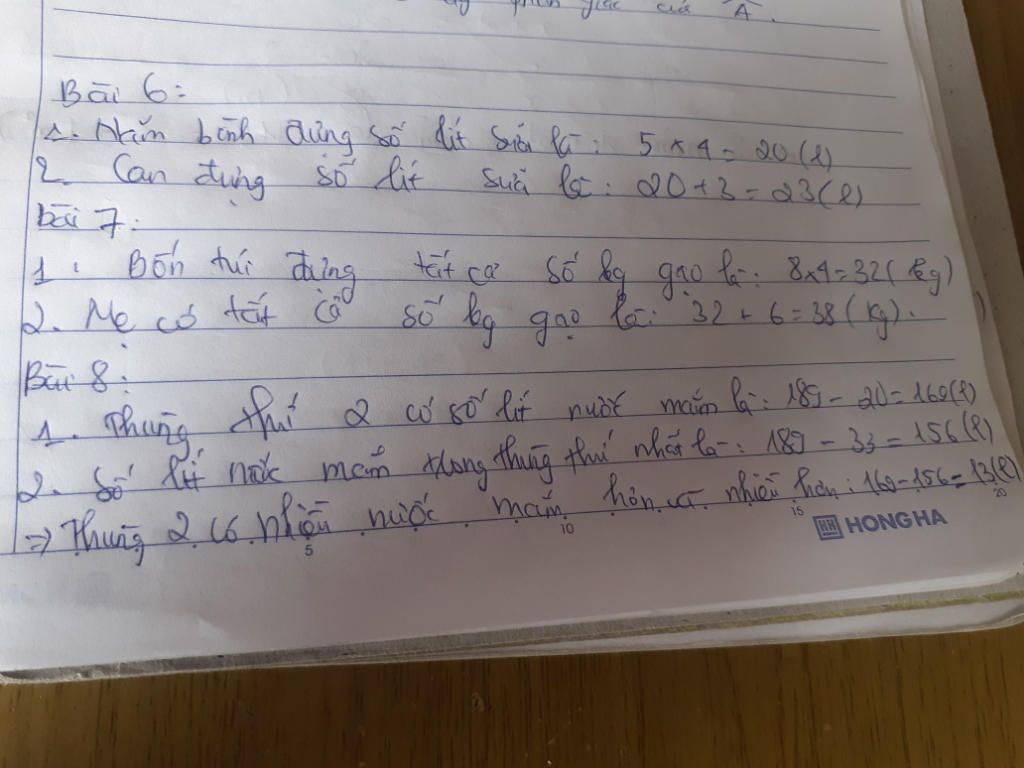 phân giác của A.
Bài 6:
1. Năm bình đựng số lít sữa là: 5 x 4 = 20 (l)
2. Can đựng số lít sữa là: 20 + 3 = 23 (l)
bài 7:
1. Bốn túi đựng tất cả số kg gạo là: 8x4=32 (kg)
2. Mẹ có tất cả số kg gạo là: 32 + 6 = 38 (kg).
Bài 8:
1. Thùng thứ 2 có số lít nước mắm là: 189 - 20 = 169 (l)
2. Số lít nước mắm trong thùng thứ nhất là: 189 - 33 = 156 (l)
=> Thùng 2 có nhiều nước mắm hơn và nhiều hơn: 169-156=13 (l)
5 10 15 20
HH HONG HA